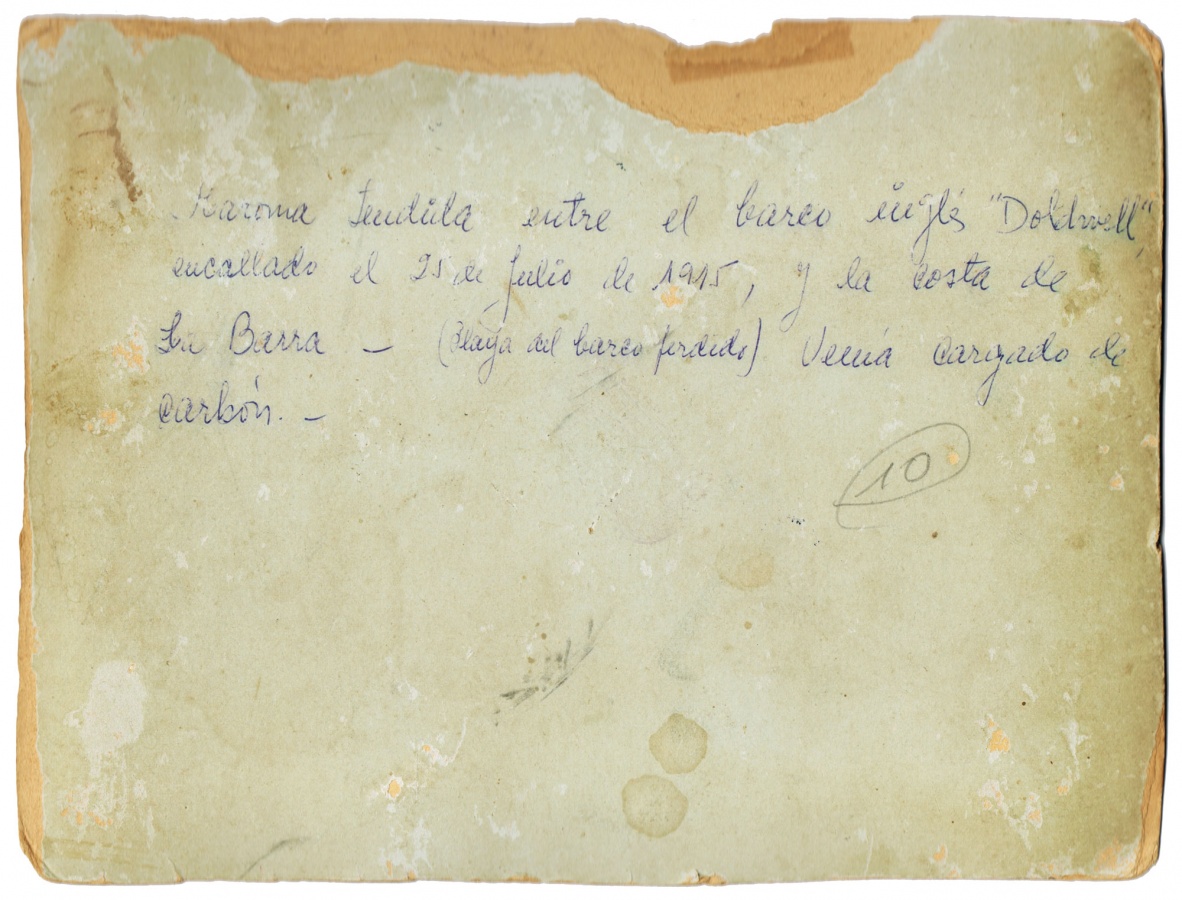 Maroma tendida entre el barco inglés "Doldwell",
encallado el 25 de julio de 1915, y la costa de
La Barra — (Playa del barco perdido) Venía cargado de
carbón. —
10